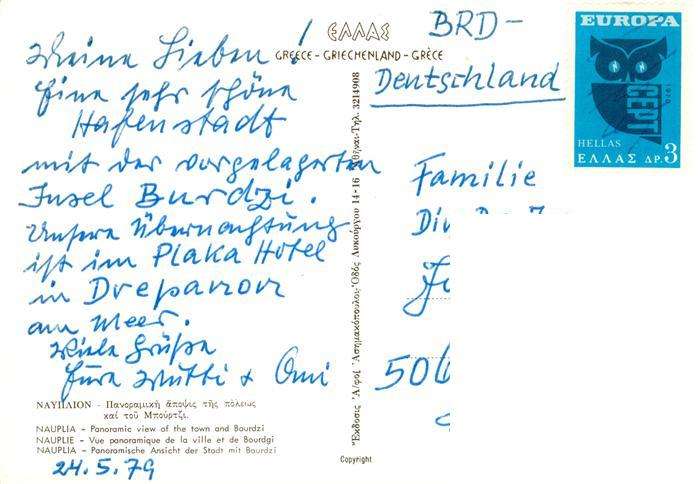 ΕΛΛΑΣ
GREECE - GRIECHENLAND - GRÈCE
Meine Lieben!
Eine sehr schöne
Hafenstadt
mit der vorgelagerten
Insel Burdzi.
Unsere Übernachtung
ist im Plaka Hotel
in Drepanon
am Meer.
Viele Grüße
Eure Mutti + Omi
ΝΑΥΠΛΙΟΝ - Πανοραμικὴ ἄποψις τῆς πόλεως
καὶ τοῦ Μπούρτζι.
NAUPLIA - Panoramic view of the town and Bourdzi
NAUPLIE - Vue panoramique de la ville et de Bourdgi
NAUPLIA - Panoramische Ansicht der Stadt mit Bourdzi
24.5.79
Λυκούργου 14-16 Τηλ. 3214908
Copyright
BRD-
Deutschland
Familie
506
EUROPA
CEPT
1970
HELLAS
ΕΛΛΑΣ ΔΡ. 3